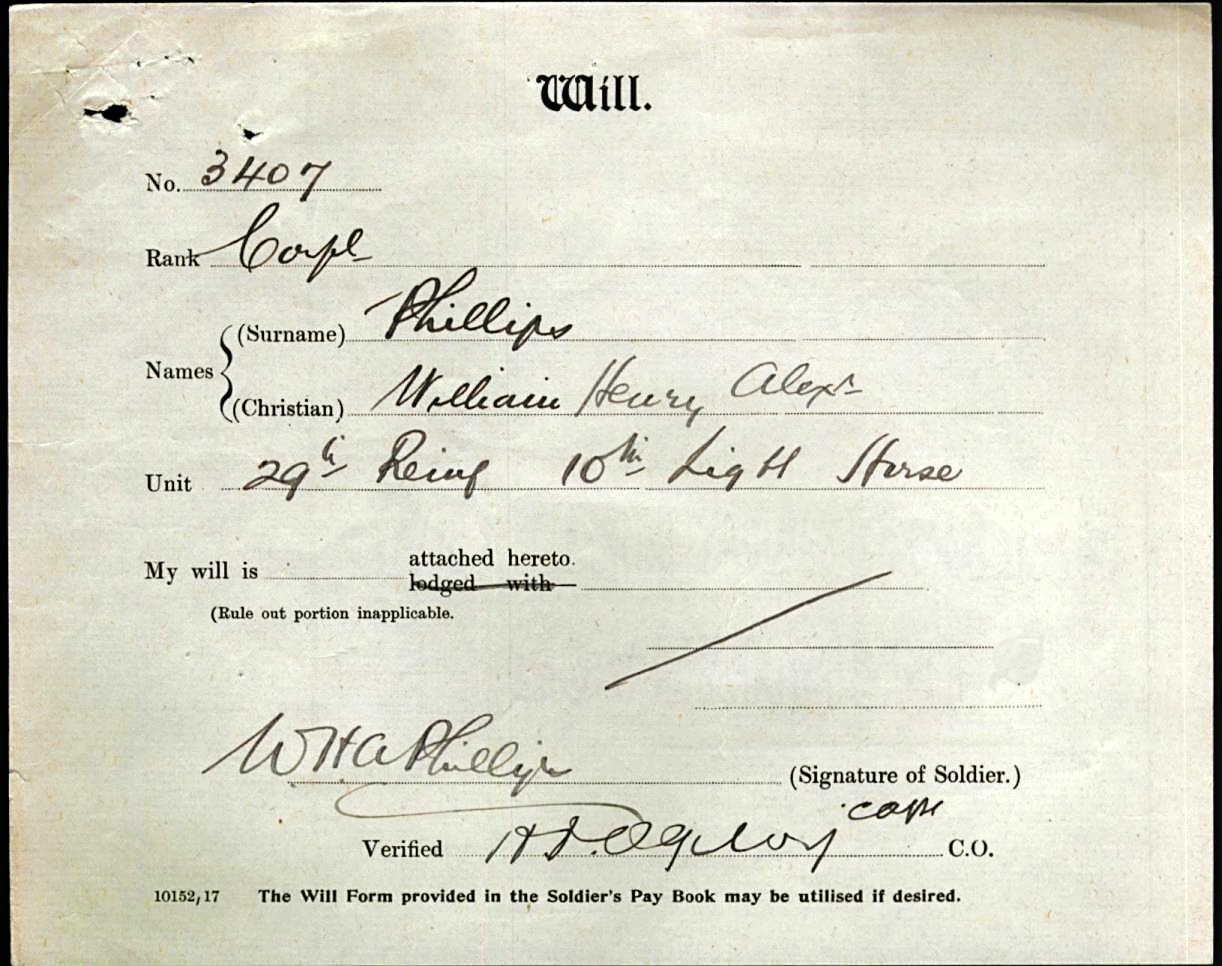 Will.
No. 3407
Rank Corpl
Names (Surname) Phillips
(Christian) William Henry Alexr
Unit 29th Reinf 10th Light Horse
My will is attached hereto.
lodged with
(Rule out portion inapplicable.
WHA Phillips (Signature of Soldier.)
Capt
Verified C.O.
10152/17 The Will Form provided in the Soldier's Pay Book may be utilised if desired.